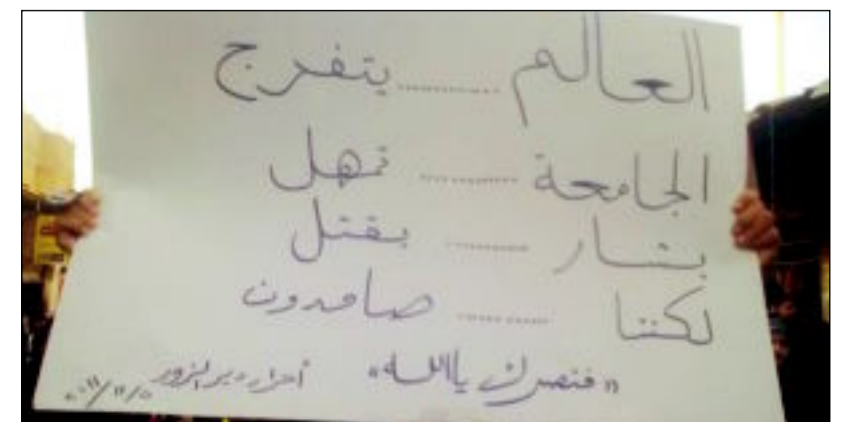 العالم ......... يتفرج
الجامعة ......... تمهل
بشار ......... يقتل
لكننا ......... صامدون
"فنصرك ياالله" أحرار دير الزور ٢٠١١/١١/٥